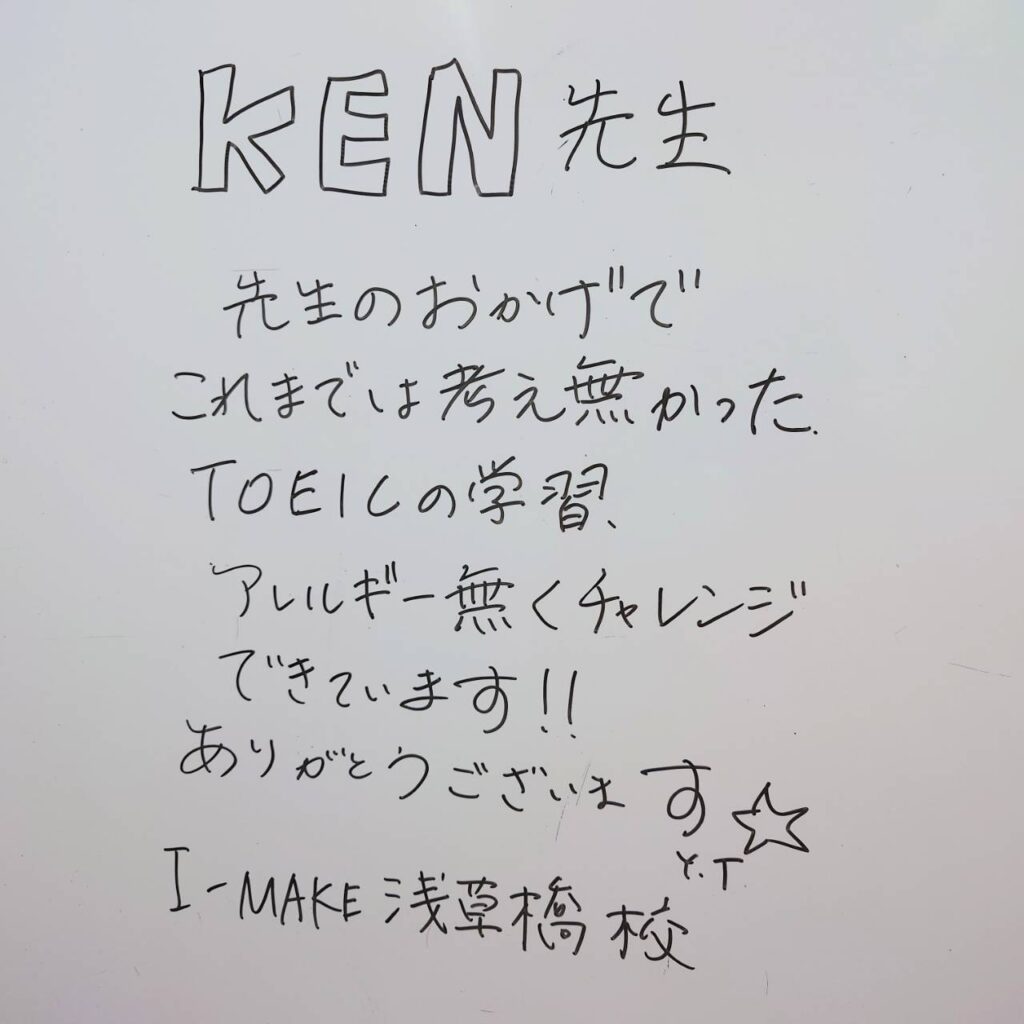 KEN 先生
先生のおかげで
これまでは考え無かった.
TOEICの学習、
アレルギー無くチャレンジ
できています!!
ありがとうございます☆
Y.T
I-MAKE 浅草橋校